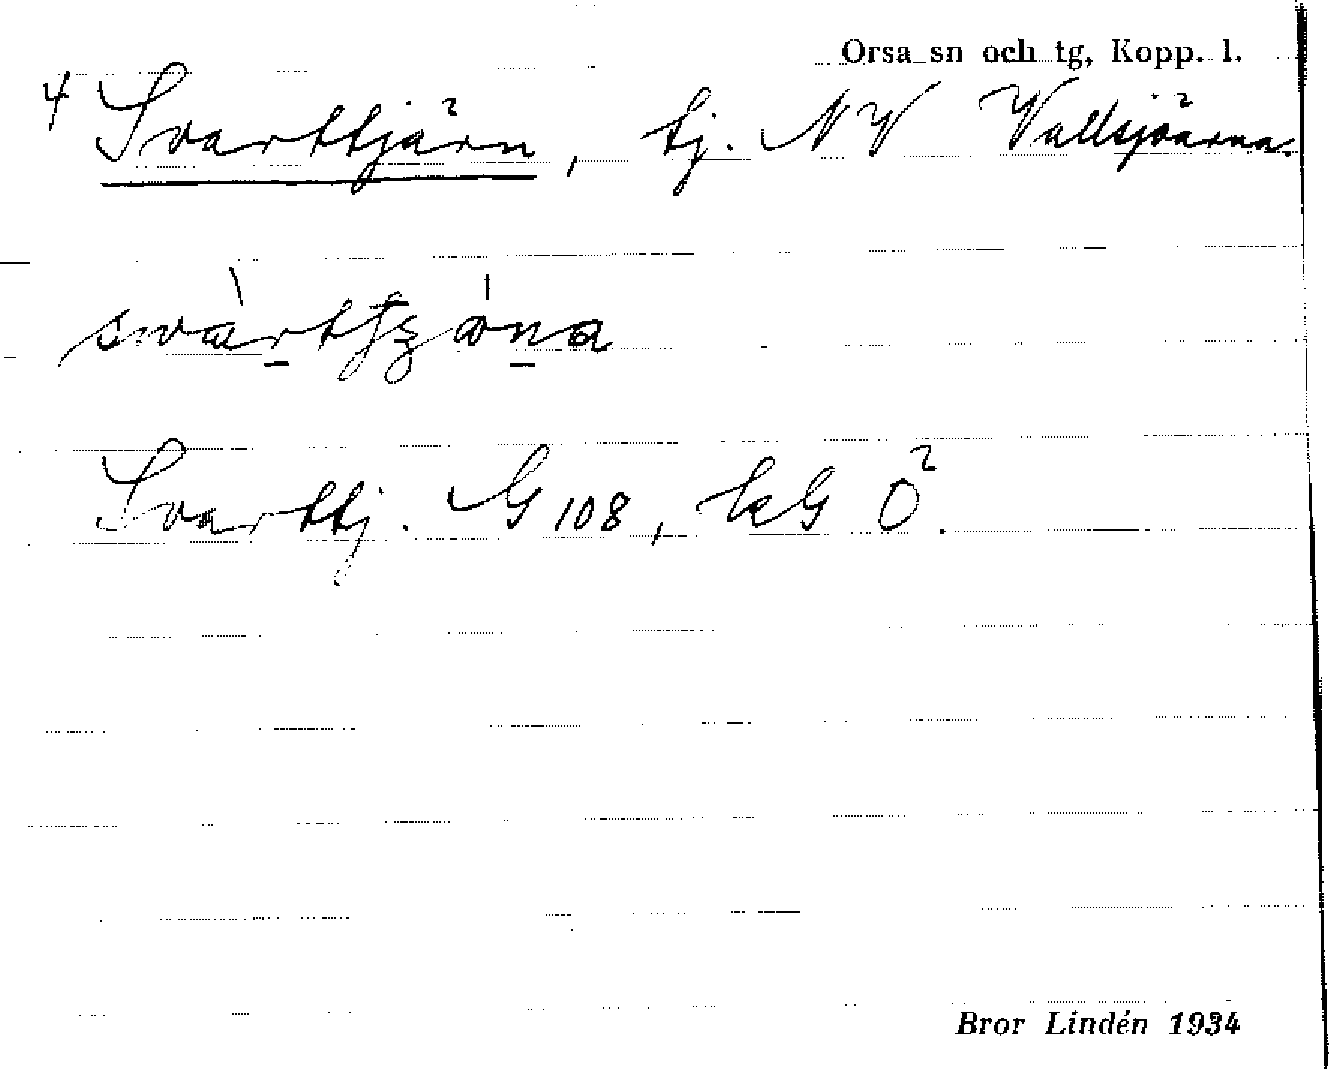 Orsa sn och tg, Kopp. l.
4 Svarttjärn, tj. NV Vallsjöarna.
Svarttj. G 108, kG Ö².
Bror Lindén 1934